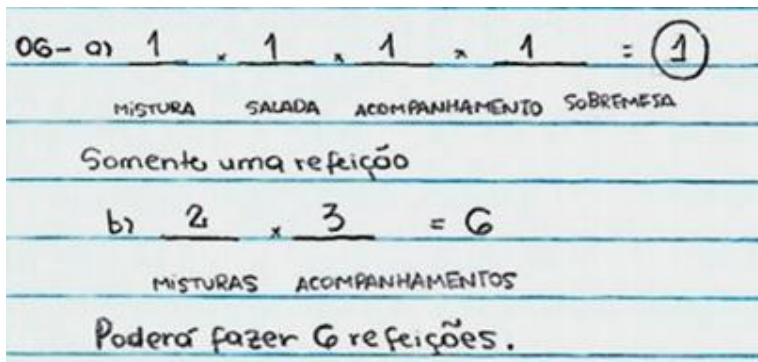 06- a) 1 x 1 x 1 x 1 = 1
MISTURA SALADA ACOMPANHAMENTO SOBREMESA
Somente uma refeição
b) 2 x 3 = 6
MISTURAS ACOMPANHAMENTOS
Poderá fazer 6 refeições.